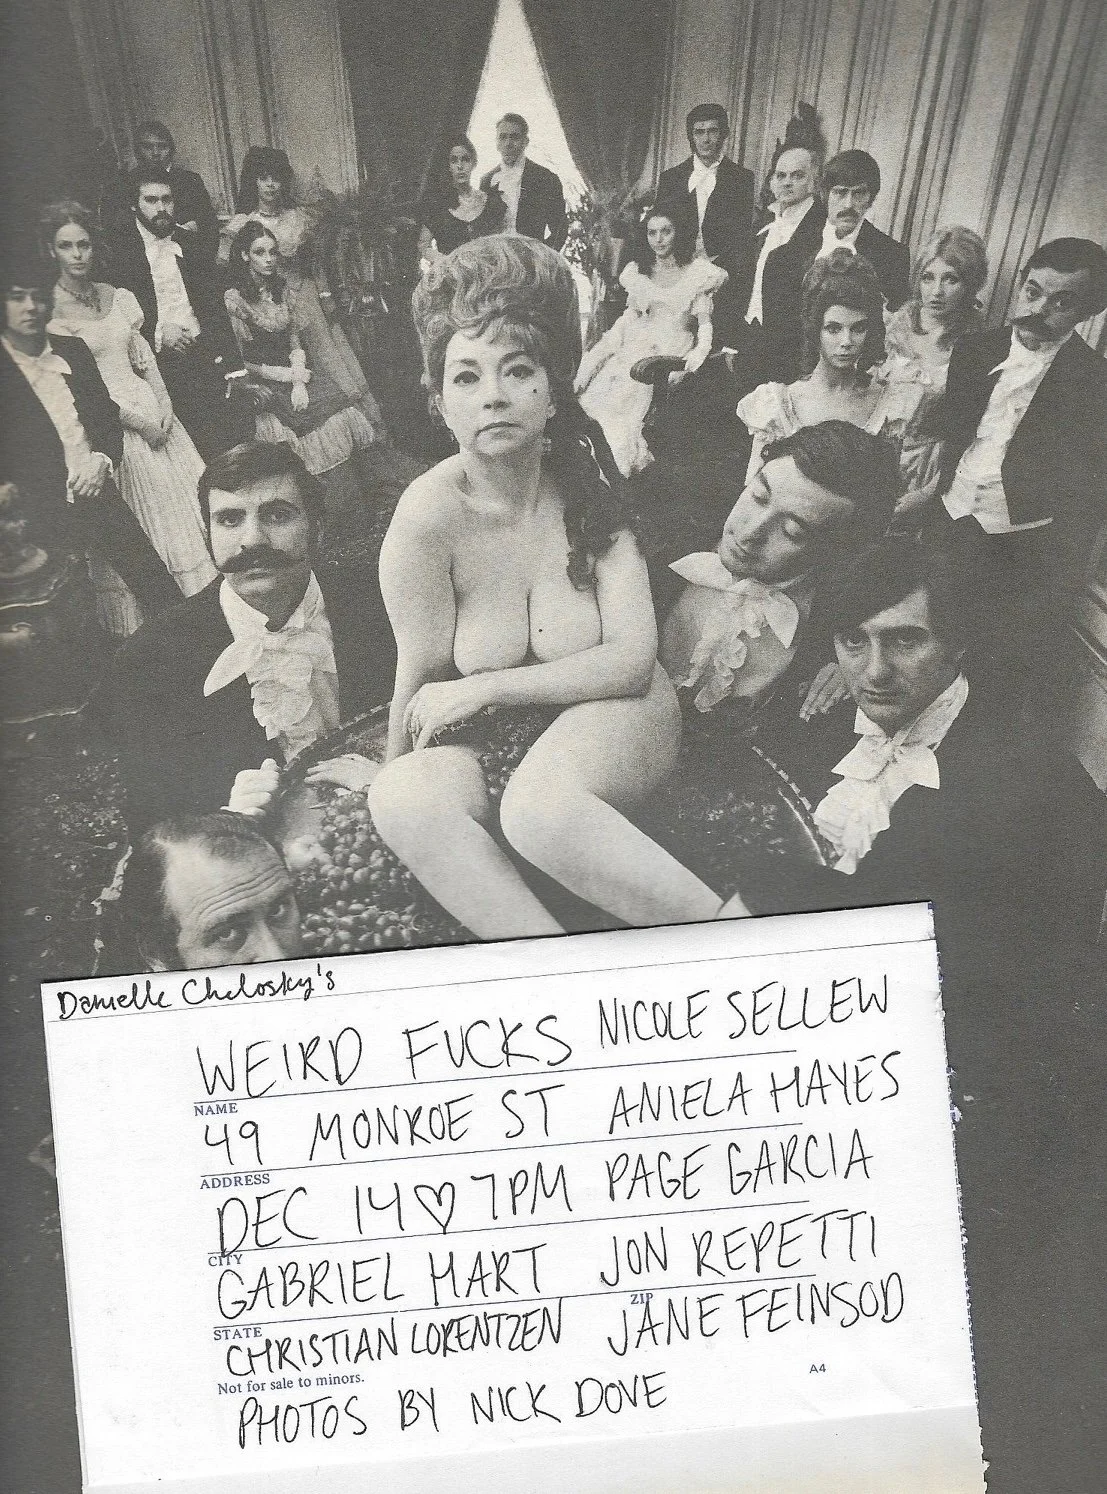 Danielle Chelosky's
WEIRD FUCKS NICOLE SELLEW
NAME
49 MONROE ST ANIELA HAYES
ADDRESS
DEC 14♡7PM PAGE GARCIA
CITY
GABRIEL HART JON REPETTI
STATE ZIP
CHRISTIAN LORENTZEN JANE FEINSOD
Not for sale to minors. A4
PHOTOS BY NICK DOVE